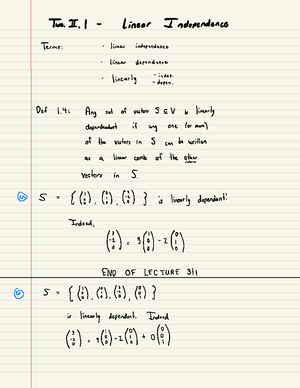 Two.II.1 - Linear Independence
Terms: · linear independence
· linear dependence
· linearly - indep.
- depen.
Def 1.4: Any set of vectors S ⊆ V is linearly
dependent if any one (or more)
of the vectors in S can be written
as a linear comb of the other
vectors in S.
S = { (1 0 0), (0 1 0), (3 -2 0) } is linearly dependent!
Indeed,
(3 -2 0) = 3 (1 0 0) - 2 (0 1 0)
END OF LECTURE 3|1
is linearly dependent. Indeed